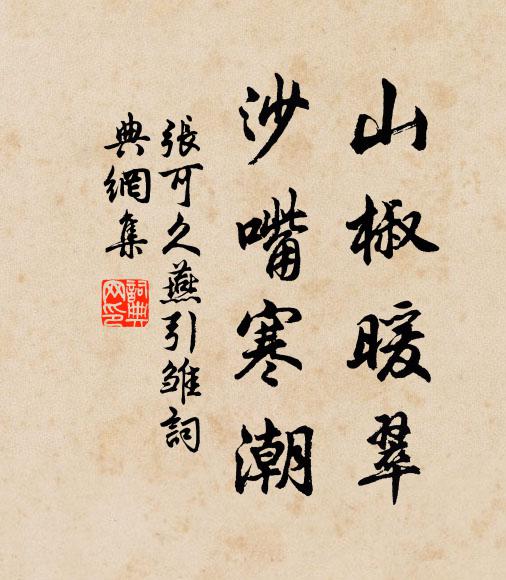 山椒暖翠
沙嘴寒潮
張可久燕引雛詞
典網集
詞典
网印